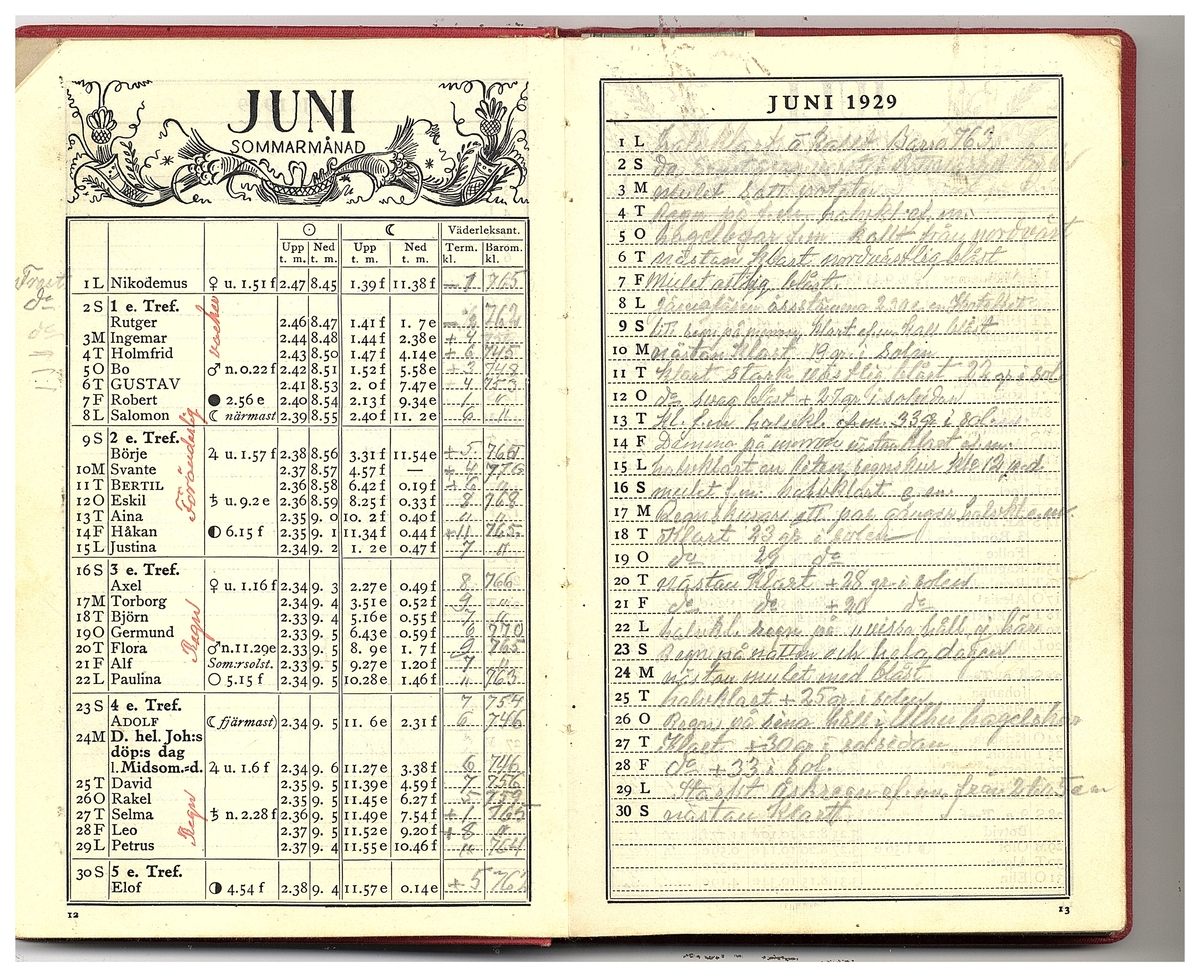 JUNI
SOMMARMÅNAD
☉ ☾ Väderleksant.
Upp Ned Upp Ned Term. Barom.
t. m. t. m. t. m. t. m. kl. kl.
1 L Nikodemus ♀ u. 1.51 f 2.47 8.45 1.39 f 11.38 f 765
2 S 1 e. Tref.
Rutger 2.46 8.47 1.41 f 1. 7 e 762
3 M Ingemar 2.44 8.48 1.44 f 2.38 e
4 T Holmfrid 2.43 8.50 1.47 f 4.14 e
5 O Bo ♂ n. 0.22 f 2.42 8.51 1.52 f 5.58 e + 3 748
6 T GUSTAV 2.41 8.53 2. 0 f 7.47 e 4 753
7 F Robert ● 2.56 e 2.40 8.54 2.13 f 9.34 e
8 L Salomon ☾ närmast 2.39 8.55 2.40 f 11. 2 e 6 "
Föränderlig
9 S 2 e. Tref.
Börje ♃ u. 1.57 f 2.38 8.56 3.31 f 11.54 e + 5
10 M Svante 2.37 8.57 4.57 f —
11 T BERTIL 2.36 8.58 6.42 f 0.19 f + 6
12 O Eskil ♄ u. 9.2 e 2.36 8.59 8.25 f 0.33 f 8 768
13 T Aina 2.35 9. 0 10. 2 f 0.40 f "
14 F Håkan ◐ 6.15 f 2.35 9. 1 11.34 f 0.44 f +11 765
15 L Justina 2.34 9. 2 1. 2 e 0.47 f 7 "
16 S 3 e. Tref.
Axel ♀ u. 1.16 f 2.34 9. 3 2.27 e 0.49 f 8 766
17 M Torborg 2.34 9. 4 3.51 e 0.52 f 9
18 T Björn 2.33 9. 4 5.16 e 0.55 f 7
19 O Germund 2.33 9. 5 6.43 e 0.59 f 6 770
20 T Flora ♂ n. 11.29 e 2.33 9. 5 8. 9 e 1. 7 f 9 765
21 F Alf Som:rsolst. 2.33 9. 5 9.27 e 1.20 f 7 "
22 L Paulina ○ 5.15 f 2.34 9. 5 10.28 e 1.46 f " 763
Regn
23 S 4 e. Tref. 7 754
ADOLF ☾ fjärmast) 2.34 9. 5 11. 6 e 2.31 f 6 746
24 M D. hel. Joh:s
döp:s dag
l. Midsom.=d. ♃ u. 1.6 f 2.34 9. 6 11.27 e 3.38 f 6 746
25 T David 2.35 9. 5 11.39 e 4.59 f 7 756
26 O Rakel 2.35 9. 5 11.45 e 6.27 f 5 759
27 T Selma ♄ n. 2.28 f 2.36 9. 5 11.49 e 7.54 f + 1 765
28 F Leo 2.37 9. 5 11.52 e 9.20 f + 8 "
29 L Petrus 2.37 9. 4 11.55 e 10.46 f " 764
Regn
30 S 5 e. Tref.
Elof ◑ 4.54 f 2.38 9. 4 11.57 e 0.14 e + 5
12
JUNI 1929
1 L halvklart å kallt Baro 76
2 S do
3 M mulet satt potatis
4 T Regn på f.m. halvkl. ef.m.
5 O hagelbyar f.m. kallt från nordväst
6 T nästan klart nordvästlig blåst
7 F Mulet ostlig blåst
8 L
9 S klart ef.m. kall blåst
10 M nästan klart 19 gr. i solen
11 T klart stark västlig blåst 22 gr i sol
12 O do svag blåst + 27 gr i solsidan
13 T kl. f.m. halvkl. ef.m. 33 gr i sol
14 F Dimma på morron nästan klart ef.m.
15 L halvklart en liten regnskur kl. 12
16 S mulet f.m. halvklart e.m.
17 M Regnskurar ett par gånger halvkl e.m.
18 T Klart 23 gr i solen
19 O do 29 do
20 T nästan klart + 28 gr i solen
21 F do do + 20 do
22 L halvkl. regn på vissa håll ej här
23 S Regn på natten och hela dagen
24 M nästan mulet med blåst
25 T halvklart + 25 gr i solen
26 O Regn på sina håll
27 T Klart + 30 gr i solsidan
28 F do + 33 i sol.
29 L Starkt åskregn ef.m. från 2 till 5 em
30 S nästan klart
13